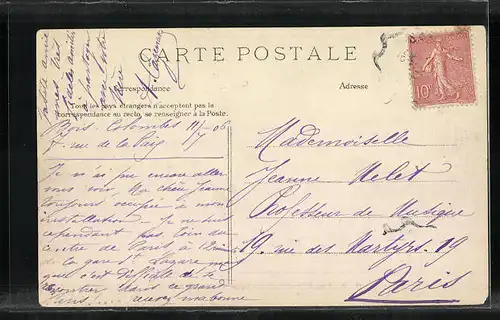 CARTE POSTALE
Correspondance
Adresse
Tous les pays étrangers n'acceptent pas la
correspondance au recto, se renseigner à la Poste.
Bois-Colombes
5. rue de la Paix
Je n'ai pu encore aller
vous voir, Ma chère Jeanne
toujours occupée à mon
installation - Je ne suis
cependant pas loin du
centre de Paris, à
de la gare St Lazare mais
que c'est difficile de se
rencontrer dans ce grand
Paris..... recevez ma bonne
Mademoiselle
Jeanne Melet
Professeur de Musique
19. rue des Martyrs. 19
Paris
10c